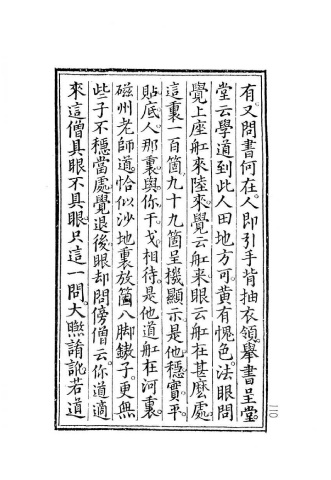 有又問書何在人即引手背抽衣領舉書呈堂
堂云學道到此人田地方可黃有愧色法眼問
覺上座舡來陸來覺云舡來眼云舡在甚麼處
這裏一百箇九十九箇呈機顯示是他穩實平
貼底人那裏與你干戈相待是他道舡在河裏
磁州老師道恰似沙地裏放箇八脚鏉子更無
些子不穩當處覺退後眼却問傍僧云你道適
來這僧具眼不具眼只這一問大㬠誵訛若道
110